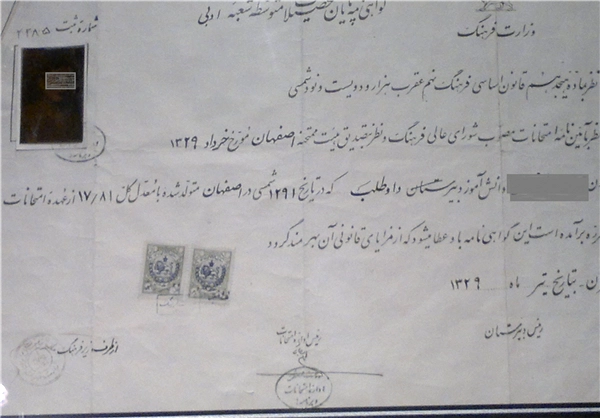 گواهی نامه پایان تحصیلات متوسطه شعبه ادبی
وزارت فرهنگ
شماره ثبت ۲۲۸۵
نظر بماده هیجدهم قانون اساسی فرهنگ نهم عقرب هزار و دویست و نود شمسی
نظر بآئین نامه امتحانات مصوب شورای عالی فرهنگ و نظر بتصدیق هیئت ممتحنه اصفهان مورخ خرداد ۱۳۲۹
دانش آموز دبیرستان داوطلب که در تاریخ ۱۲۹۱ شمسی در اصفهان متولد شده با معدل کل ۱۷/۸۱ از عهده امتحانات
برآمده است این گواهی نامه باو عطا میشود که از مزایای قانونی آن بهره مند گردد
بتاریخ تیر ماه ۱۳۲۹
رئیس دبیرستان
رئیس اداره امتحانات
از طرف وزیر فرهنگ
اداره امتحانات